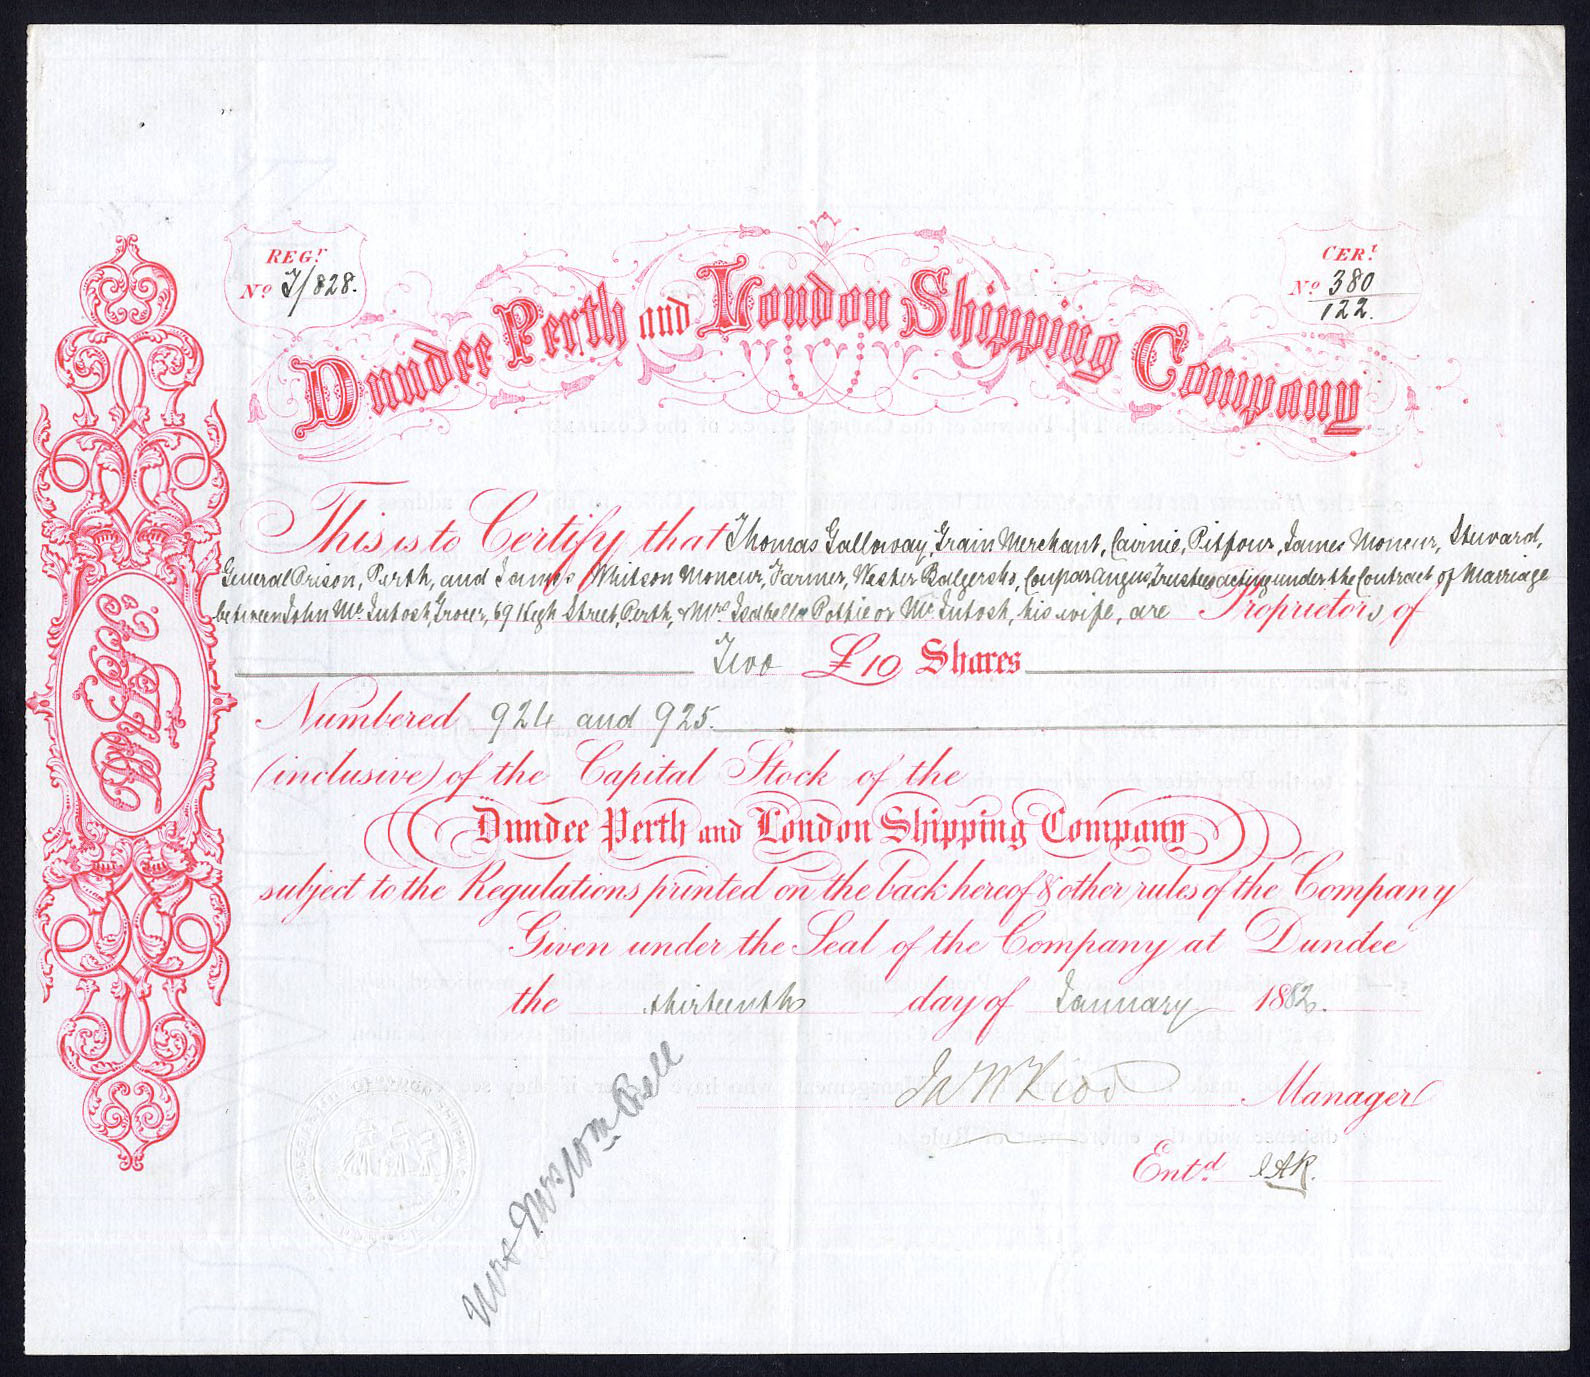 REG.r
No 7/828.
CER.t
No 380
122.
Dundee Perth and London Shipping Company
This is to Certify that Thomas Galloway, Grain Merchant, Cairnie, Pitfour, James Moncur, Steward,
General Prison, Perth, and James Whitson Moncur, Farmer, Wester Balgersho, Coupar Angus, Trustees acting under the Contract of Marriage
between John Mc.Intosh, Grocer, 69 High Street, Perth, & Mrs Isabella Pottie or Mc.Intosh, his wife, are Proprietors of
Two £10 Shares
Numbered 924 and 925.
(inclusive) of the Capital Stock of the
Dundee Perth and London Shipping Company
subject to the Regulations printed on the back hereof & other rules of the Company
Given under the Seal of the Company at Dundee
the thirteenth day of January 1882.
Manager
Ent.d
Bell